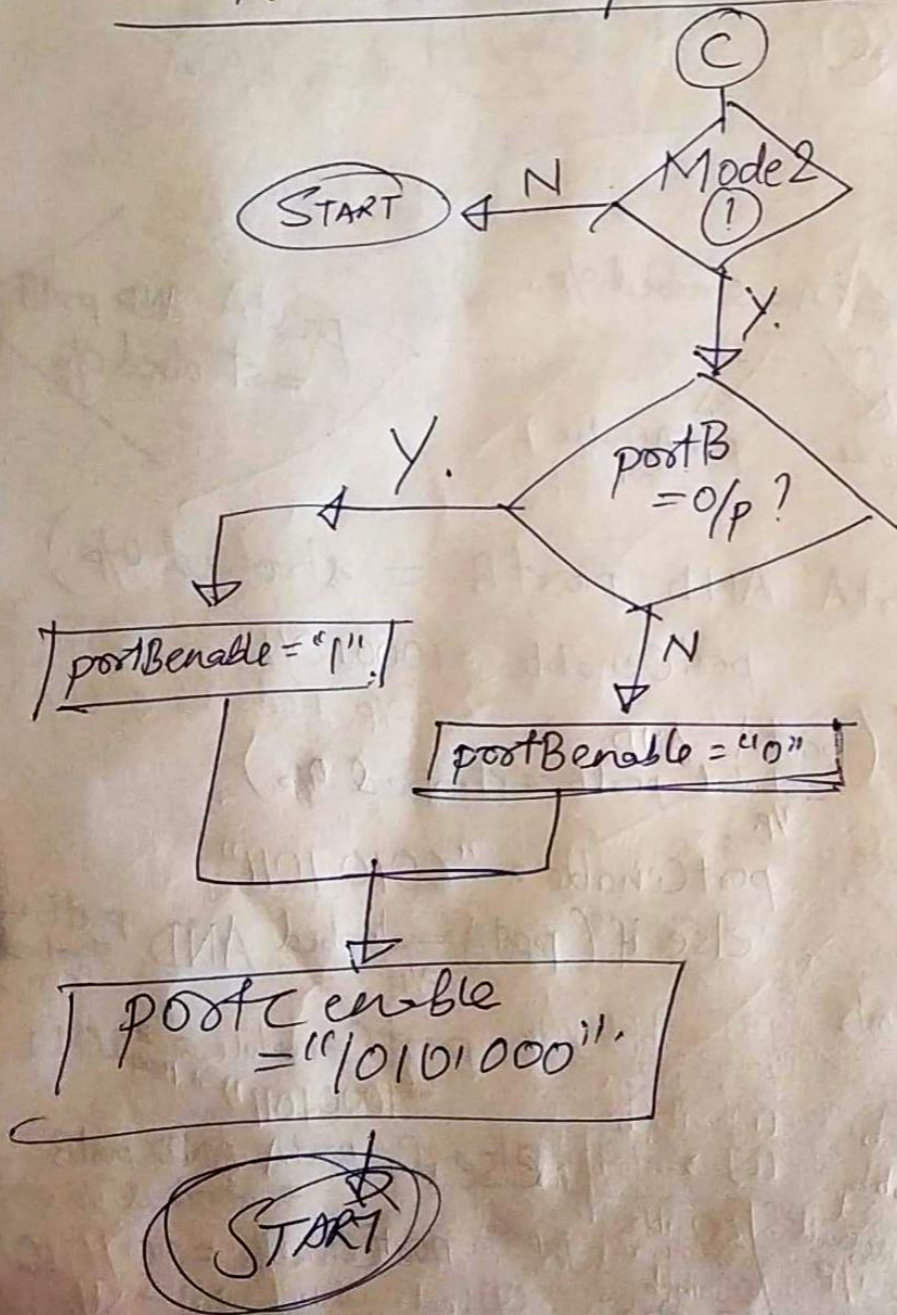 C
Mode2
!
N
START
Y.
portB
=O/p ?
Y.
N
portBenable = "1".
portBenable = "0"
portC enable
="10101000".
START